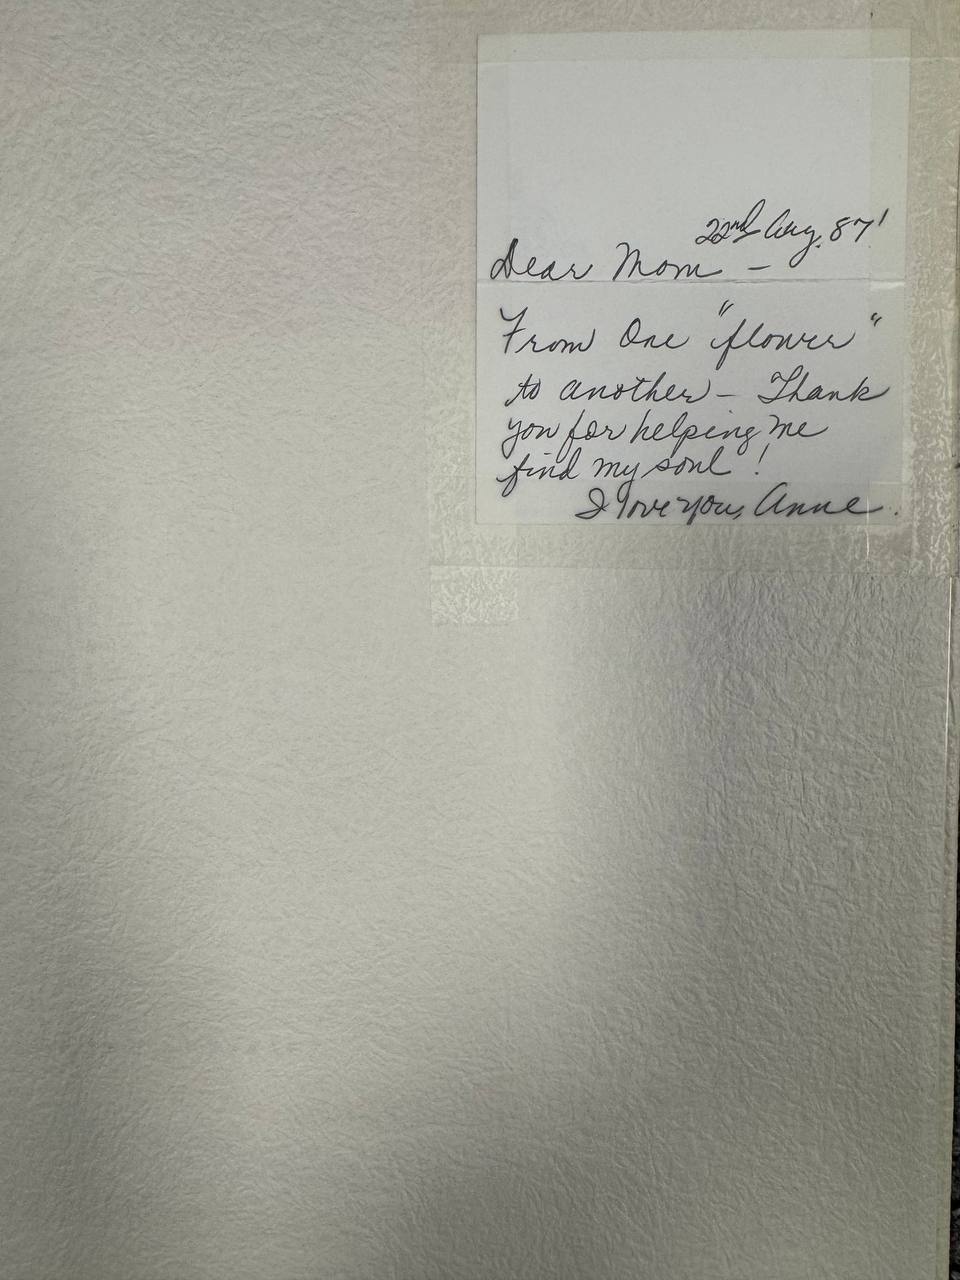 22nd Aug. 87'
Dear Mom —
From One "flower"
to another — Thank
you for helping me
find my soul!
I love you, Anne.